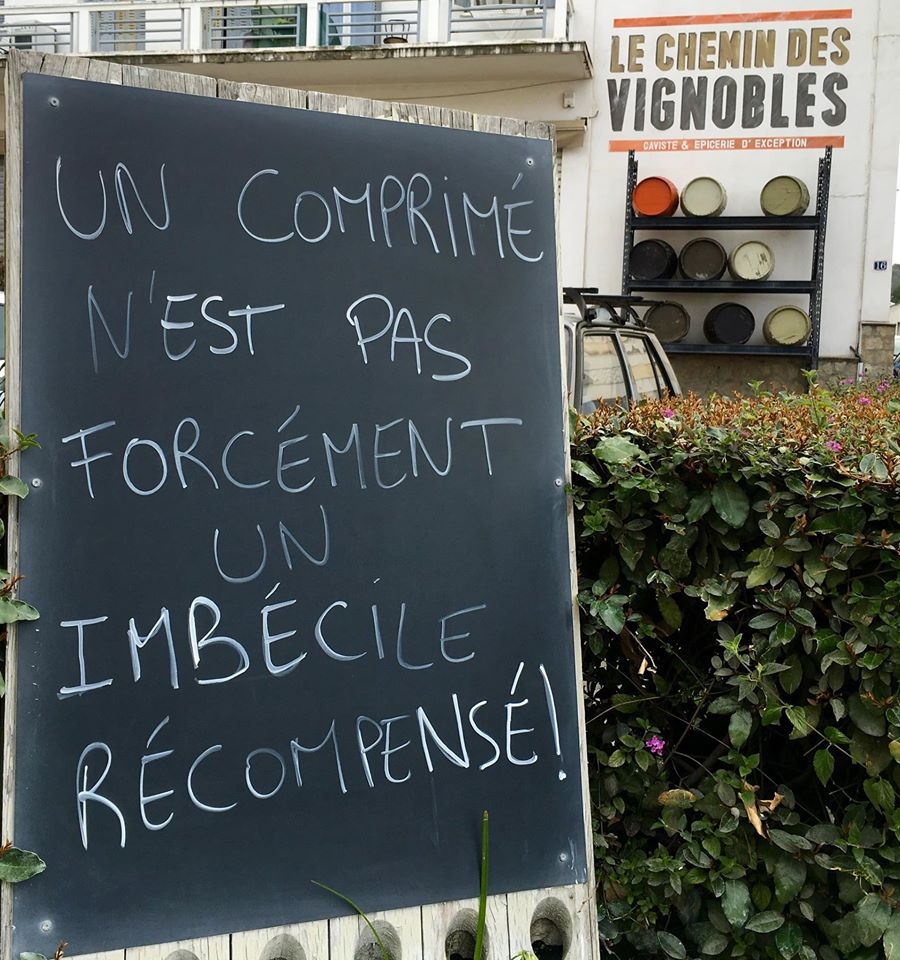 UN COMPRIMÉ
N'EST PAS
FORCÉMENT
UN
IMBÉCILE
RÉCOMPENSÉ!
LE CHEMIN DES
VIGNOBLES
CAVISTE & EPICERIE D'EXCEPTION
16